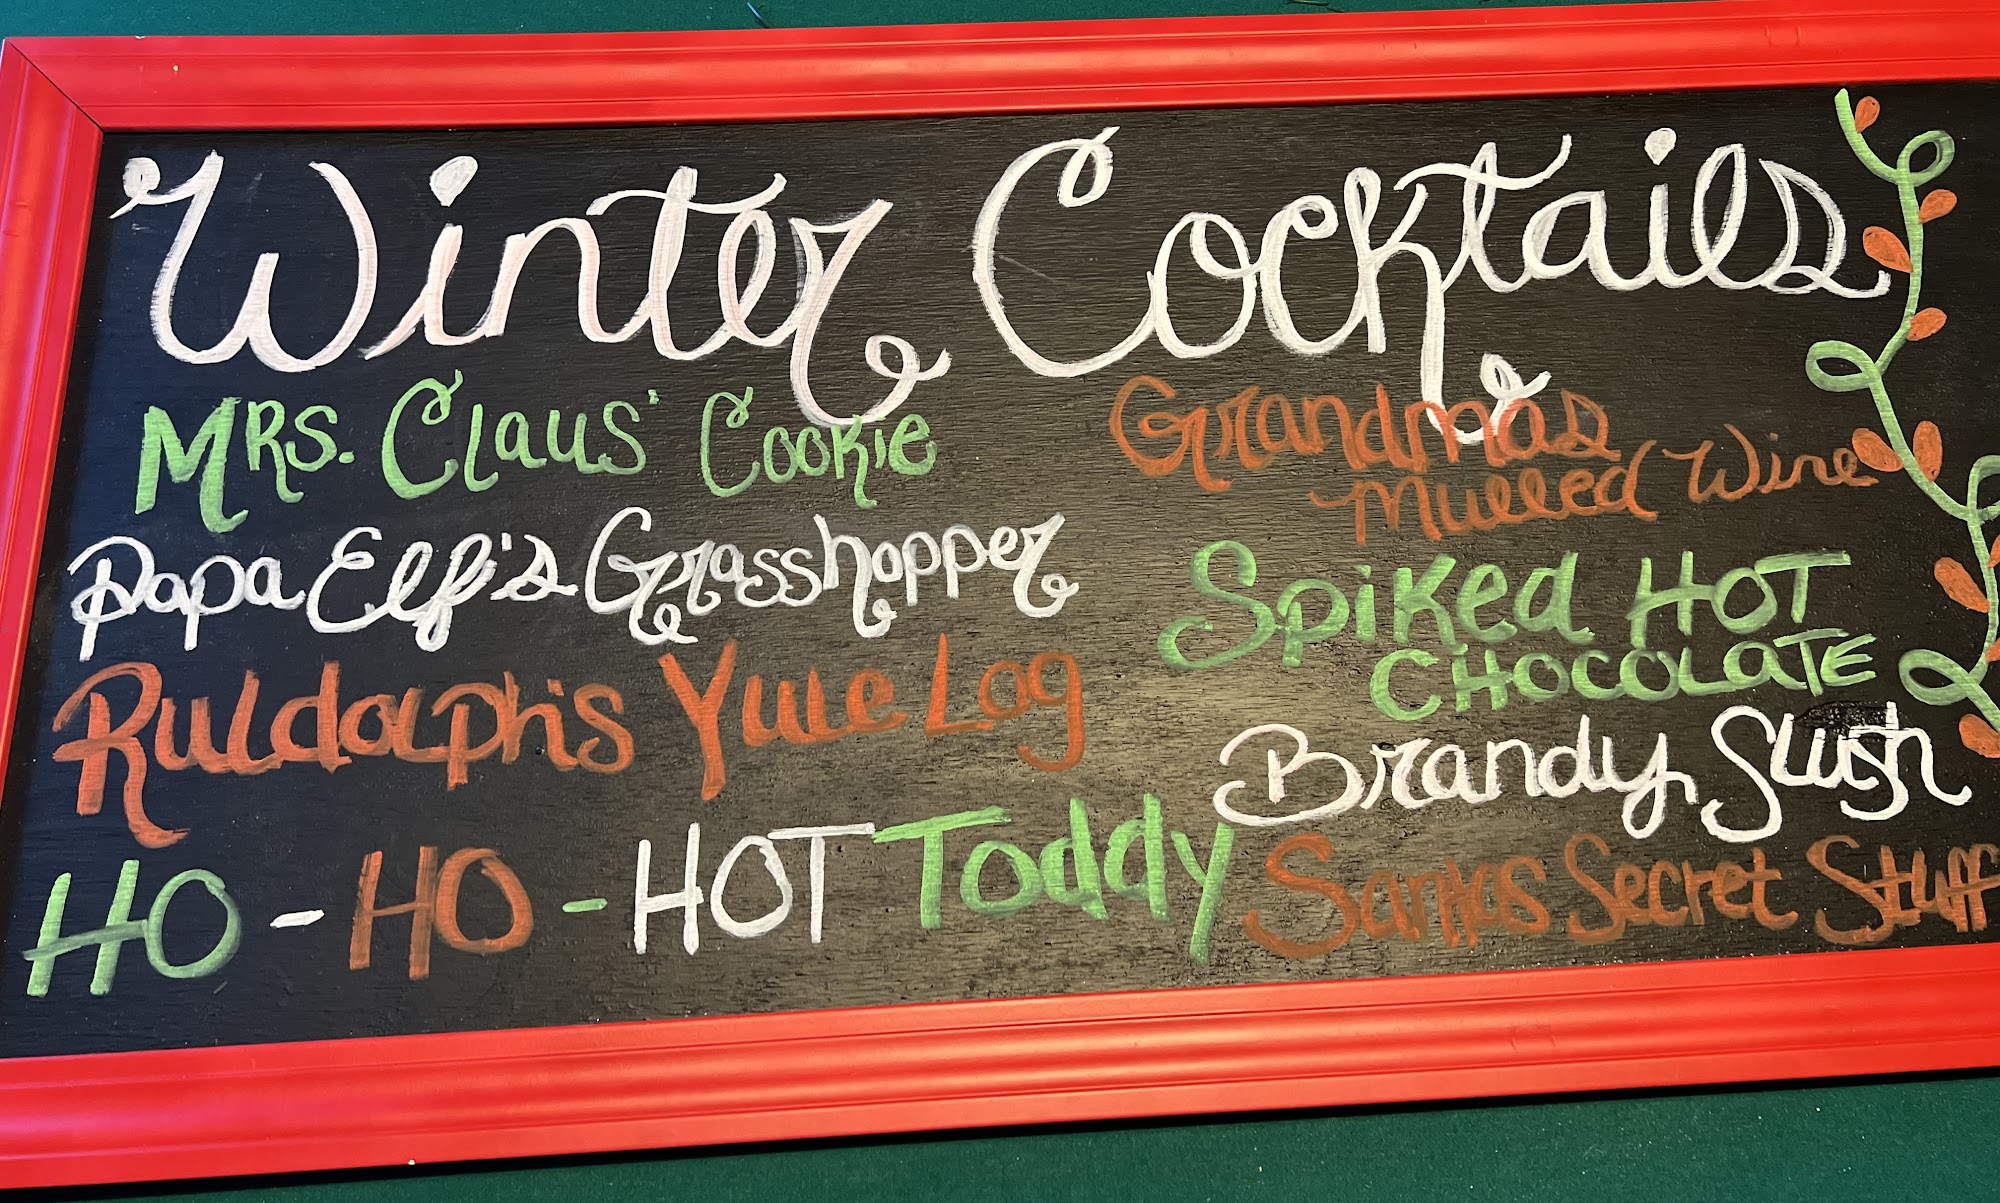 Winter Cocktails
MRS. Claus' Cookie
Papa Elf's Grasshopper
Ruldolph's Yule Log
HO - HO - HOT Toddy
Grandmas
Mulled Wine
Spiked HOT
CHOCOLATE
Brandy Slush
Santas Secret Stuff